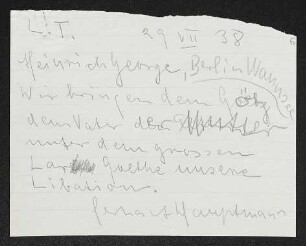 L.T. 29 VII 38
Heinrich George, Berlin Wannsee
Wir bringen dem Götz
dem Vater der Mutter
unter dem grossen
Goethe unsere
Libation.
Gerhart Hauptmann